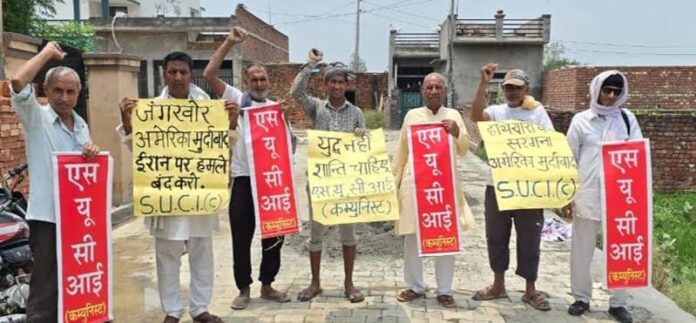 एस
यू
सी
आई
(कम्युनिस्ट)
जंगखोर
अमेरिका मुर्दाबाद
ईरान पर हमले
बंद करो.
S.U.C.I.(C)
एस
यू
सी
आई
(कम्युनिस्ट)
युद्ध नहीं
शान्ति चाहिए
एस यू सी आई
(कम्युनिस्ट)
एस
यू
सी
आई
(कम्युनिस्ट)
हथियारों का
सरगना
अमेरिका मुर्दाबाद
S.U.C.I(C)
एस
यू
सी
आई
(कम्युनिस्ट)